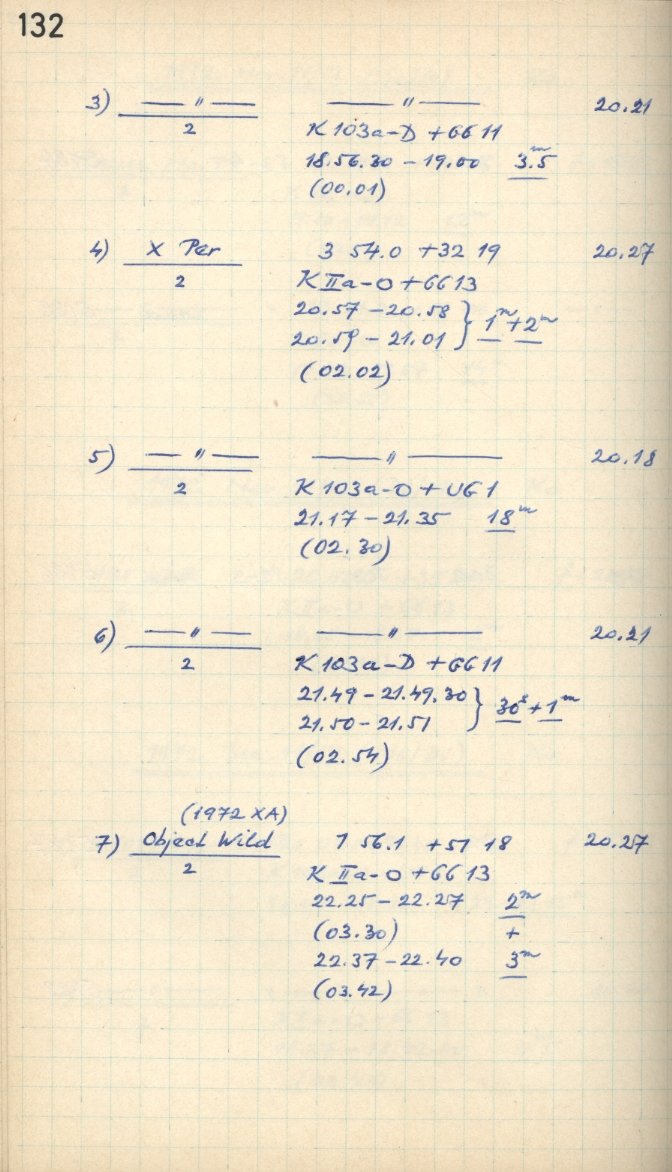 132
3) — " — — " — 20.21
2 K 103a-D + GG 11
18.56.30 – 19.00 3.5ᵐ
(00.01)
4) X Per 3 54.0 +32 19 20.27
2 K IIa-O + GG 13
20.57 – 20.58 } 1ᵐ + 2ᵐ
20.59 – 21.01
(02.02)
5) — " — — " — 20.18
2 K 103a-O + UG 1
21.17 – 21.35 18ᵐ
(02.30)
6) — " — — " — 20.21
2 K 103a-D + GG 11
21.49 – 21.49.30 } 30ˢ + 1ᵐ
21.50 – 21.51
(02.54)
(1972 XA)
7) Object Wild 7 56.1 +51 18 20.27
2 K IIa-O + GG 13
22.25 – 22.27 2ᵐ
(03.30) +
22.37 – 22.40 3ᵐ
(03.42)